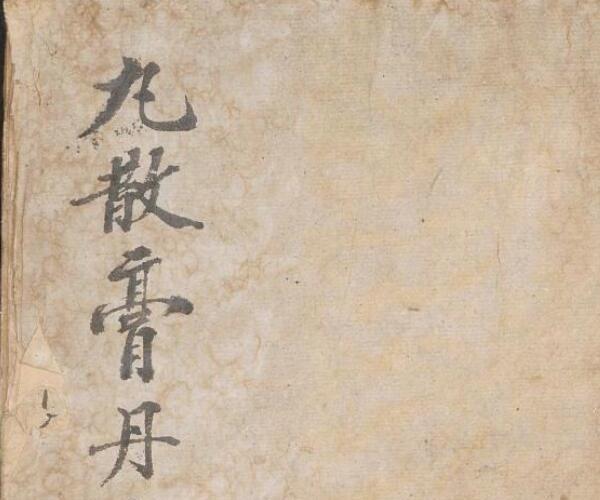 丸散膏丹